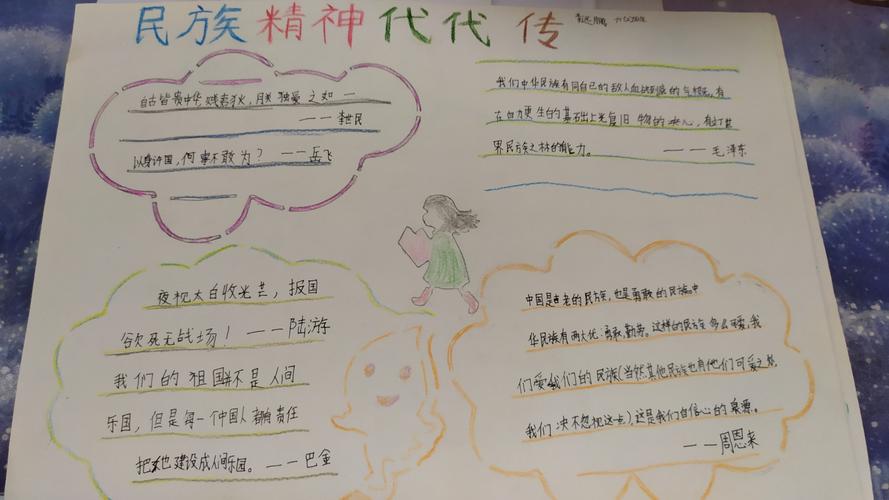 民族精神代代传
自古皆贵中华,贱夷狄,朕独爱之如一
——李世民
以身许国,何事不敢为?——岳飞
我们中华民族有同自己的敌人血战到底的气概,有
在自力更生的基础上光复旧物的决心,有
界民族之林的能力。——毛泽东
夜视太白收光芒,报国
欲死无战场!——陆游
我们的祖国并不是人间
乐园,但是每一个中国人都有责任
把她建设成人间乐园。——巴金
中国是古老的民族,也是勇敢的民族。中
华民族有两大优:勇敢,勤劳。这样的民族多么可爱,我
们爱我们的民族(当然其他民族也有他们可爱之处,
我们决不忽视这一点),这是我们自信心的泉源。
——周恩来